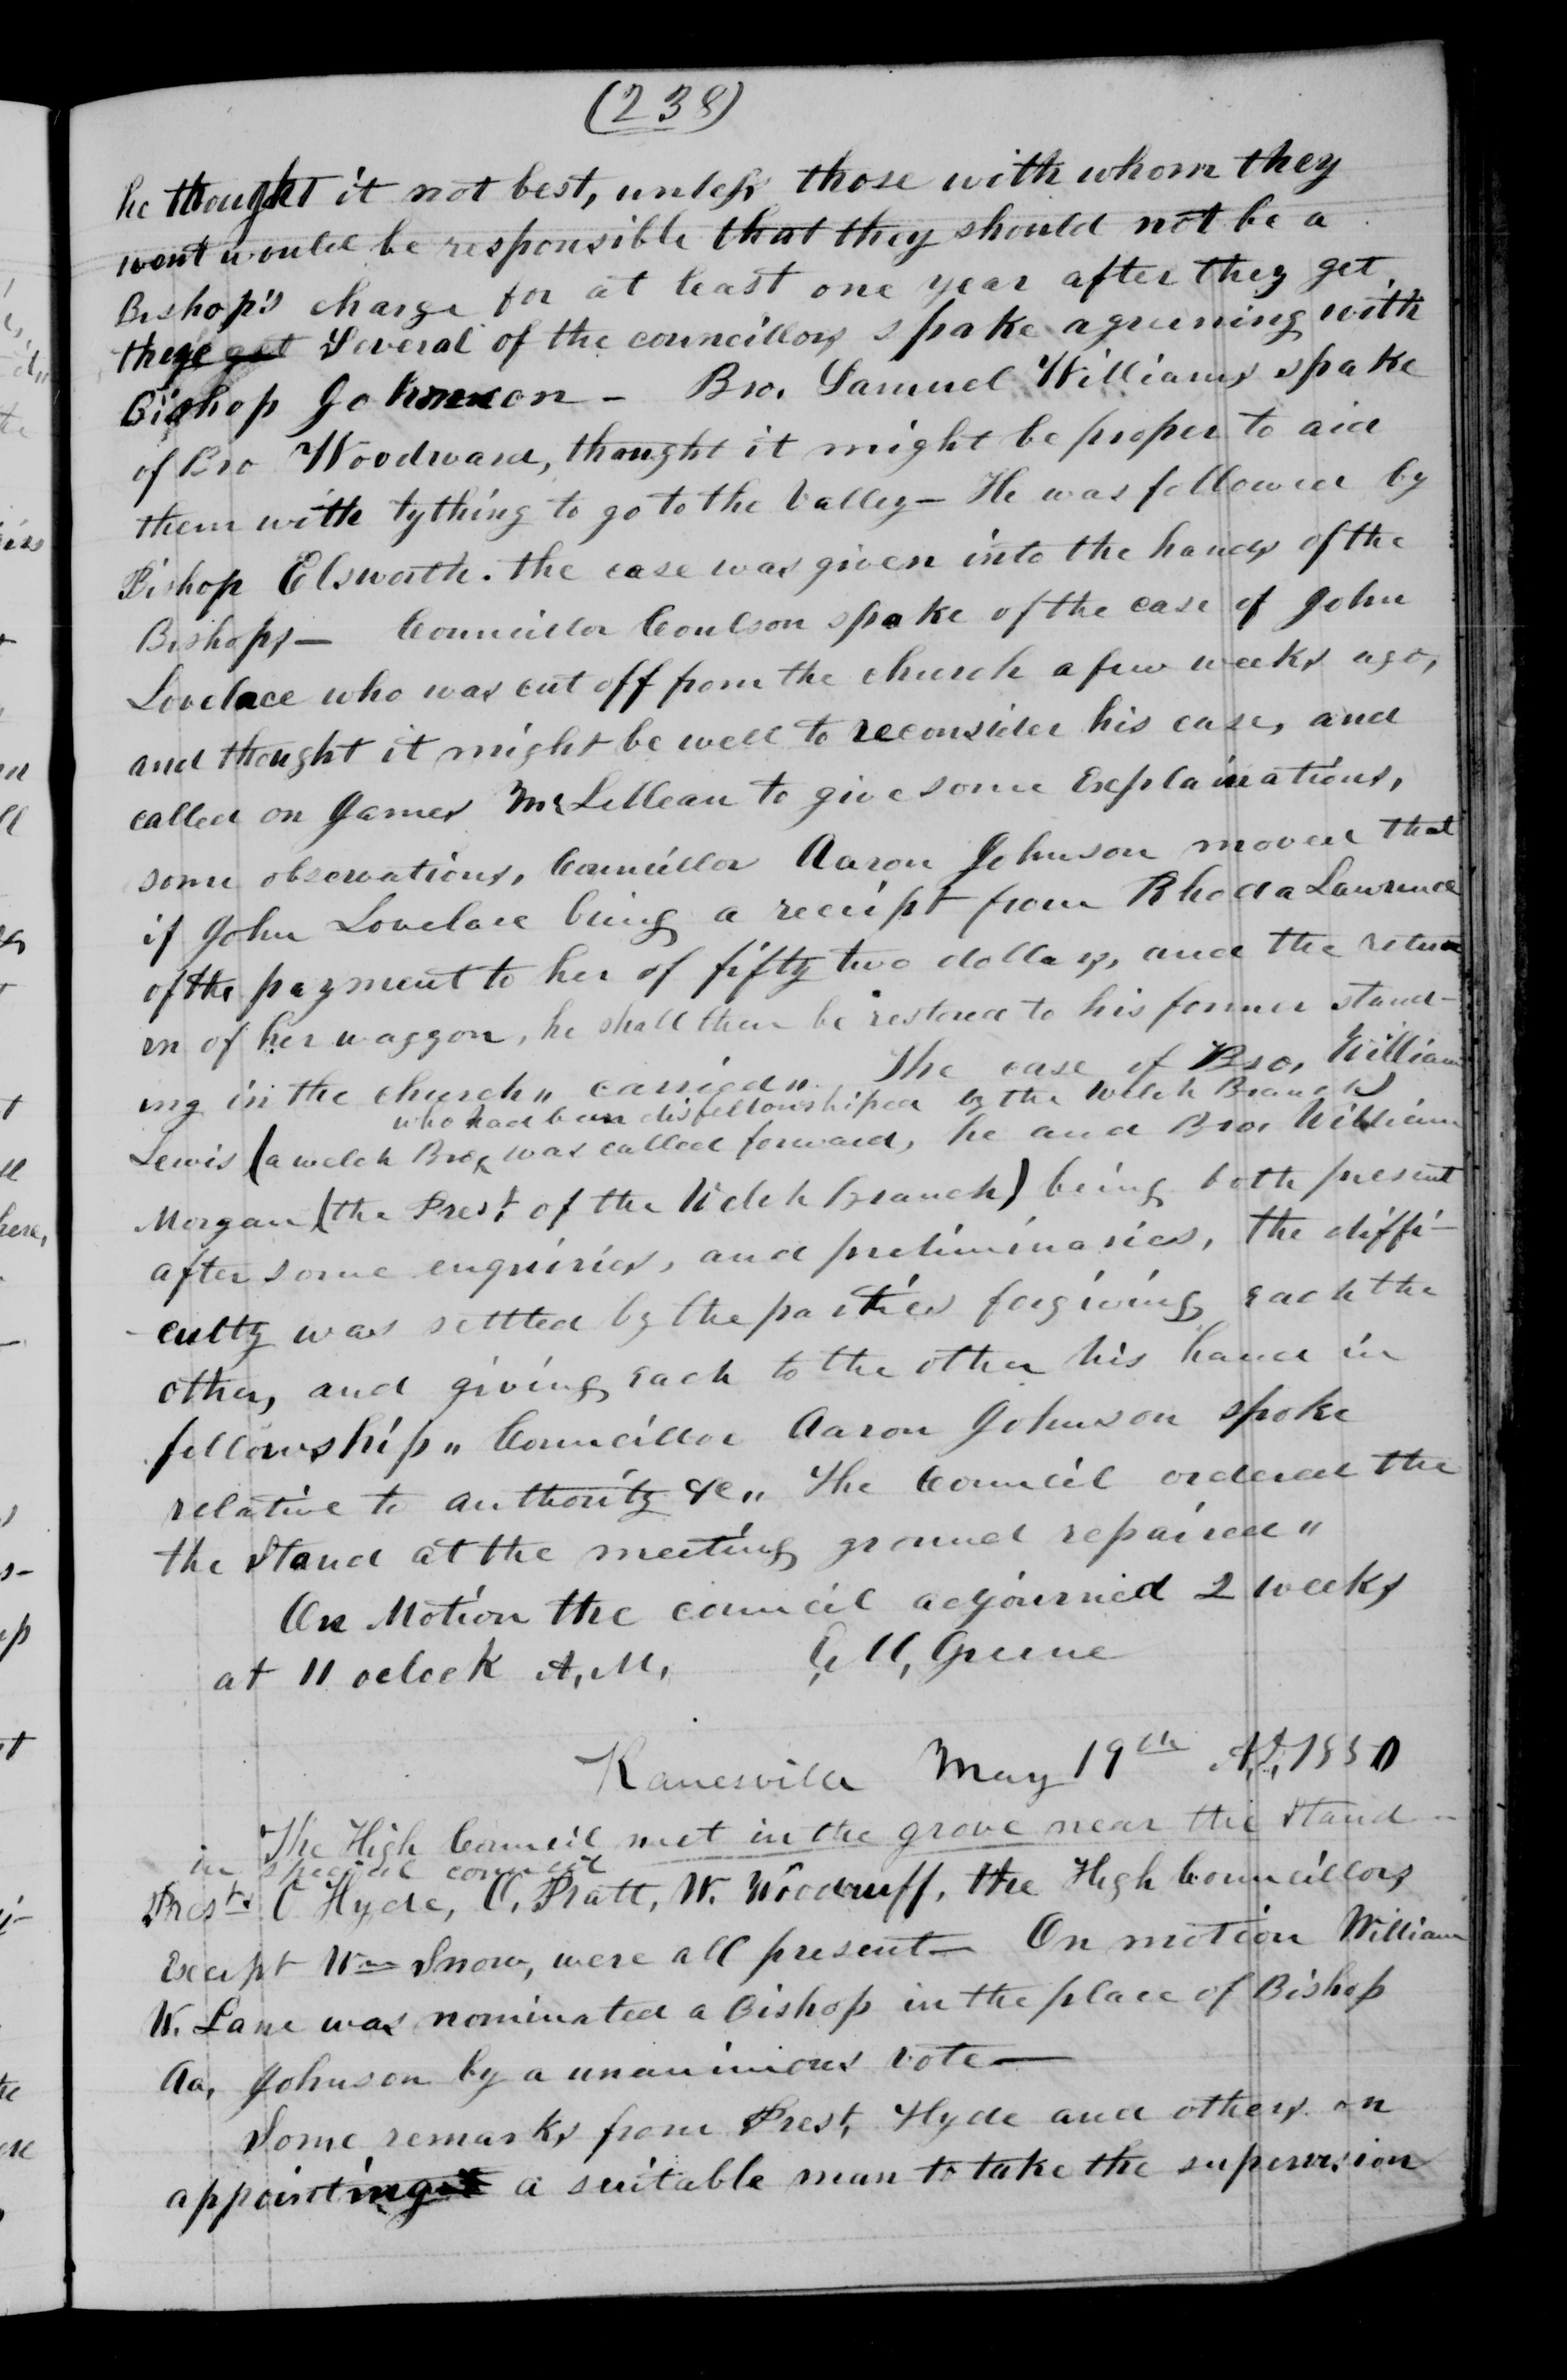 (238)
he thought it not best, unless those with whom they
went would be responsible that they should not be a
Bishop's charge for at least one year after they get
there Several of the councillors spake agreening with
Bishop Johnson - Bro. Samuel Williams spake
of Bro Woodward, thought it might be proper to aid
them with tything to go to the Valley - He was followed by
Bishop Elsworth. the case was given into the hands of the
Bishops - Councillor Coulson spake of the case of John
Lovelace who was cut off from the church a few weeks ago,
and thought it might be well to reconsider his case, and
called on James McLellean to give some Explainations,
some observations, Councillor Aaron Johnson moved that
if John Lovelace bring a receipt from Rhoda Lawrence
of the payment to her of fifty two dollars, and the return
rn of her waggon, he shall then be restored to his former stand-
ing in the church" carried". The case of Bro. William
who had been disfellowshiped by the Welch Branch)
Lewis (a welch Bro, was called forward, he and Bro. William
Morgan (the Prest. of the Welch Branch) being both present
after some enquiries, and preliminaries, the diffi-
-culty was settled by the parties forgiving each the
other, and giving each to the other his hand in
fellowship" Councillor Aaron Johnson spoke
relative to authority &c" The Council ordered the
the Stand at the meeting ground repaired"
On Motion the council adjourned 2 weeks
at 11 oclock A.M. Greene
Kanesville May 19th A.D. 1850
The High Council met in the grove near the Stand -
in special council
Prests O Hyde, O. Pratt, W. Woodruff, the High Councillors
Except Wm Snow, were all present - On motion William
W. Lane was nominated a Bishop in the place of Bishop
Aa. Johnson by a unanimous vote -
Some remarks from Prest. Hyde and others on
appointing a suitable man to take the supervision